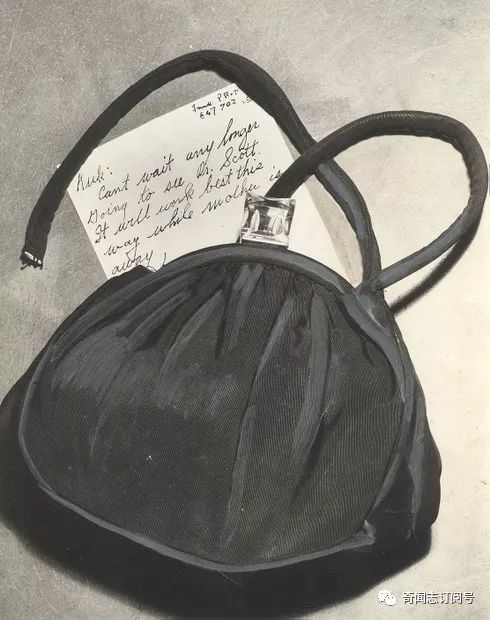 647 702
Kirk:
Can't wait any longer
Going to see Dr. Scott.
It will work best this
way while mother is
away,
奇闻志订阅号